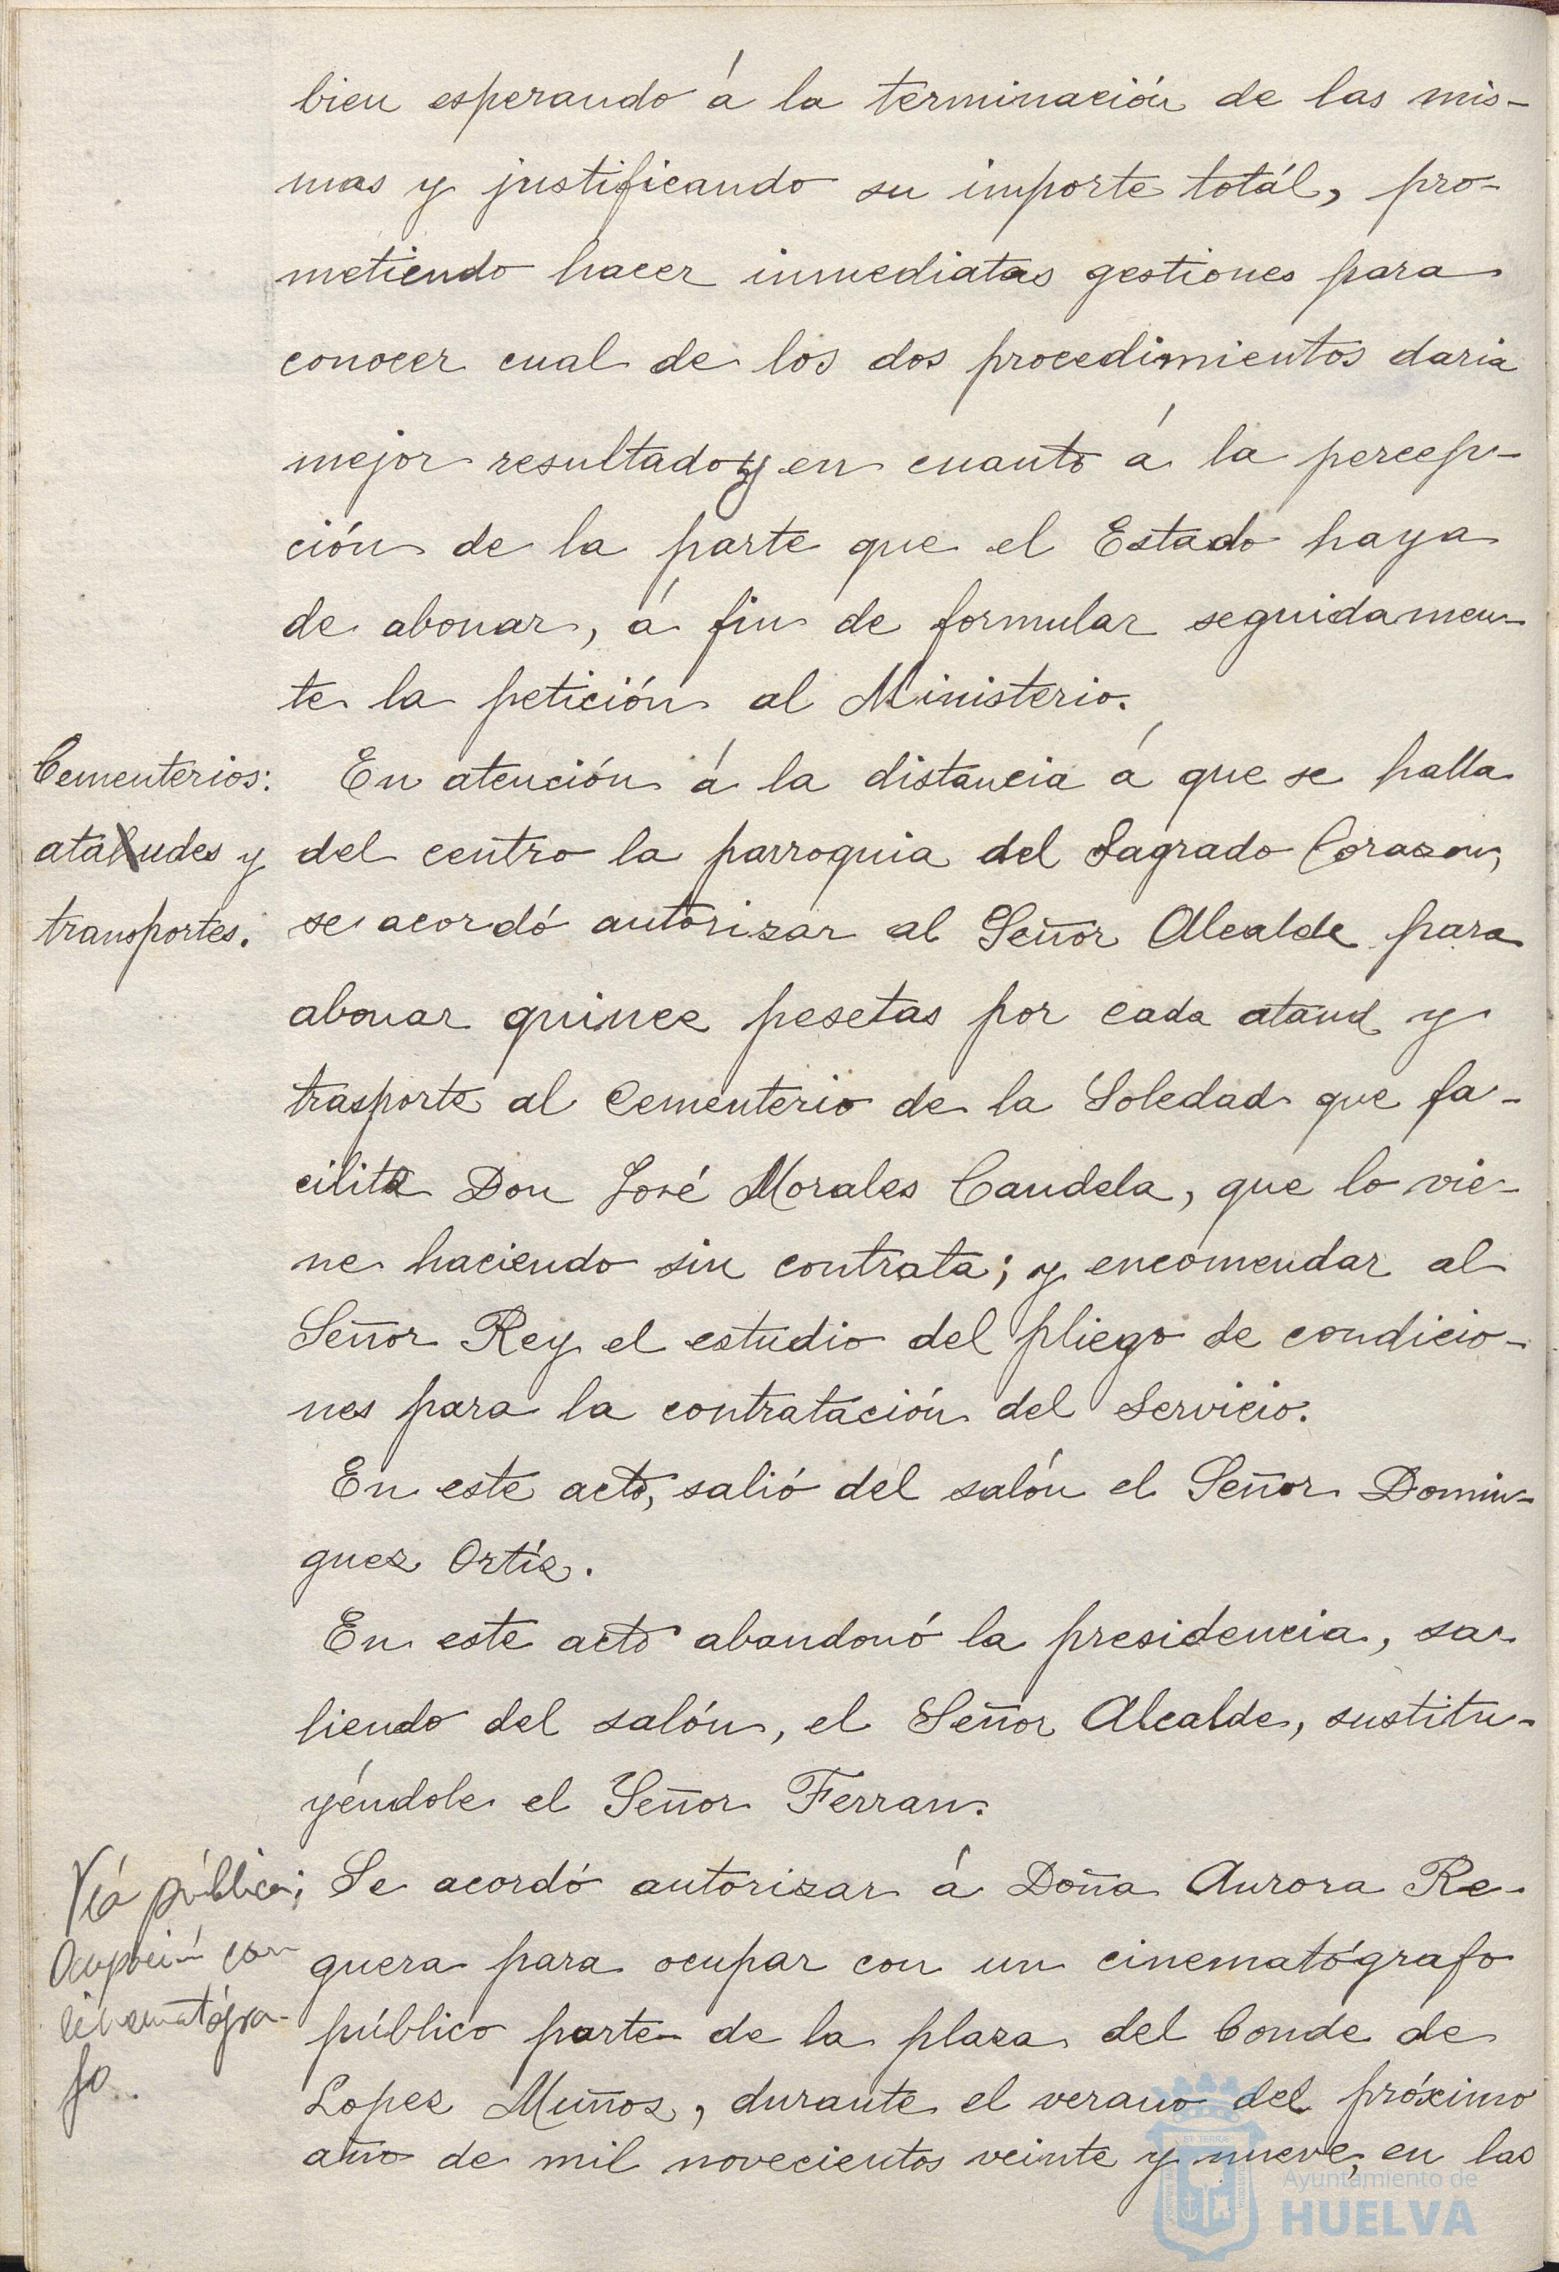 bien esperando á la terminación de las mis-
mas y justificando su importe totál, pro-
metiendo hacer inmediatas gestiones para
conocer cual de los dos procedimientos daria
mejor resultado y en cuanto á la percep-
ción de la parte que el Estado haya
de abonar, á fin de formular seguidamen-
te la petición al Ministerio.
Cementerios:
ataudes y
transportes.
En atención á la distancia á que se halla
del centro la parroquia del Sagrado Corazon,
se acordó autorizar al Señor Alcalde para
abonar quince pesetas por cada ataud y
trasporte al Cementerio de la Soledad que fa-
cilita Don José Morales Candela, que lo vie-
ne haciendo sin contrata; y encomendar al
Señor Rey el estudio del pliego de condicio-
nes para la contratación del servicio.
En este acto, salió del salón el Señor Domin-
guez Ortíz.
En este acto abandonó la presidencia, sa-
liendo del salón, el Señor Alcalde, sustitu-
yéndole el Señor Ferran.
Vía pública;
Ocupación con
cinematógra-
fo.
Se acordó autorizar á Doña Aurora Re-
guera para ocupar con un cinematógrafo
público parte de la plaza del Conde de
Lopez Muñoz, durante el verano del próximo
año de mil novecientos veinte y nueve, en las
Ayuntamiento de
HUELVA